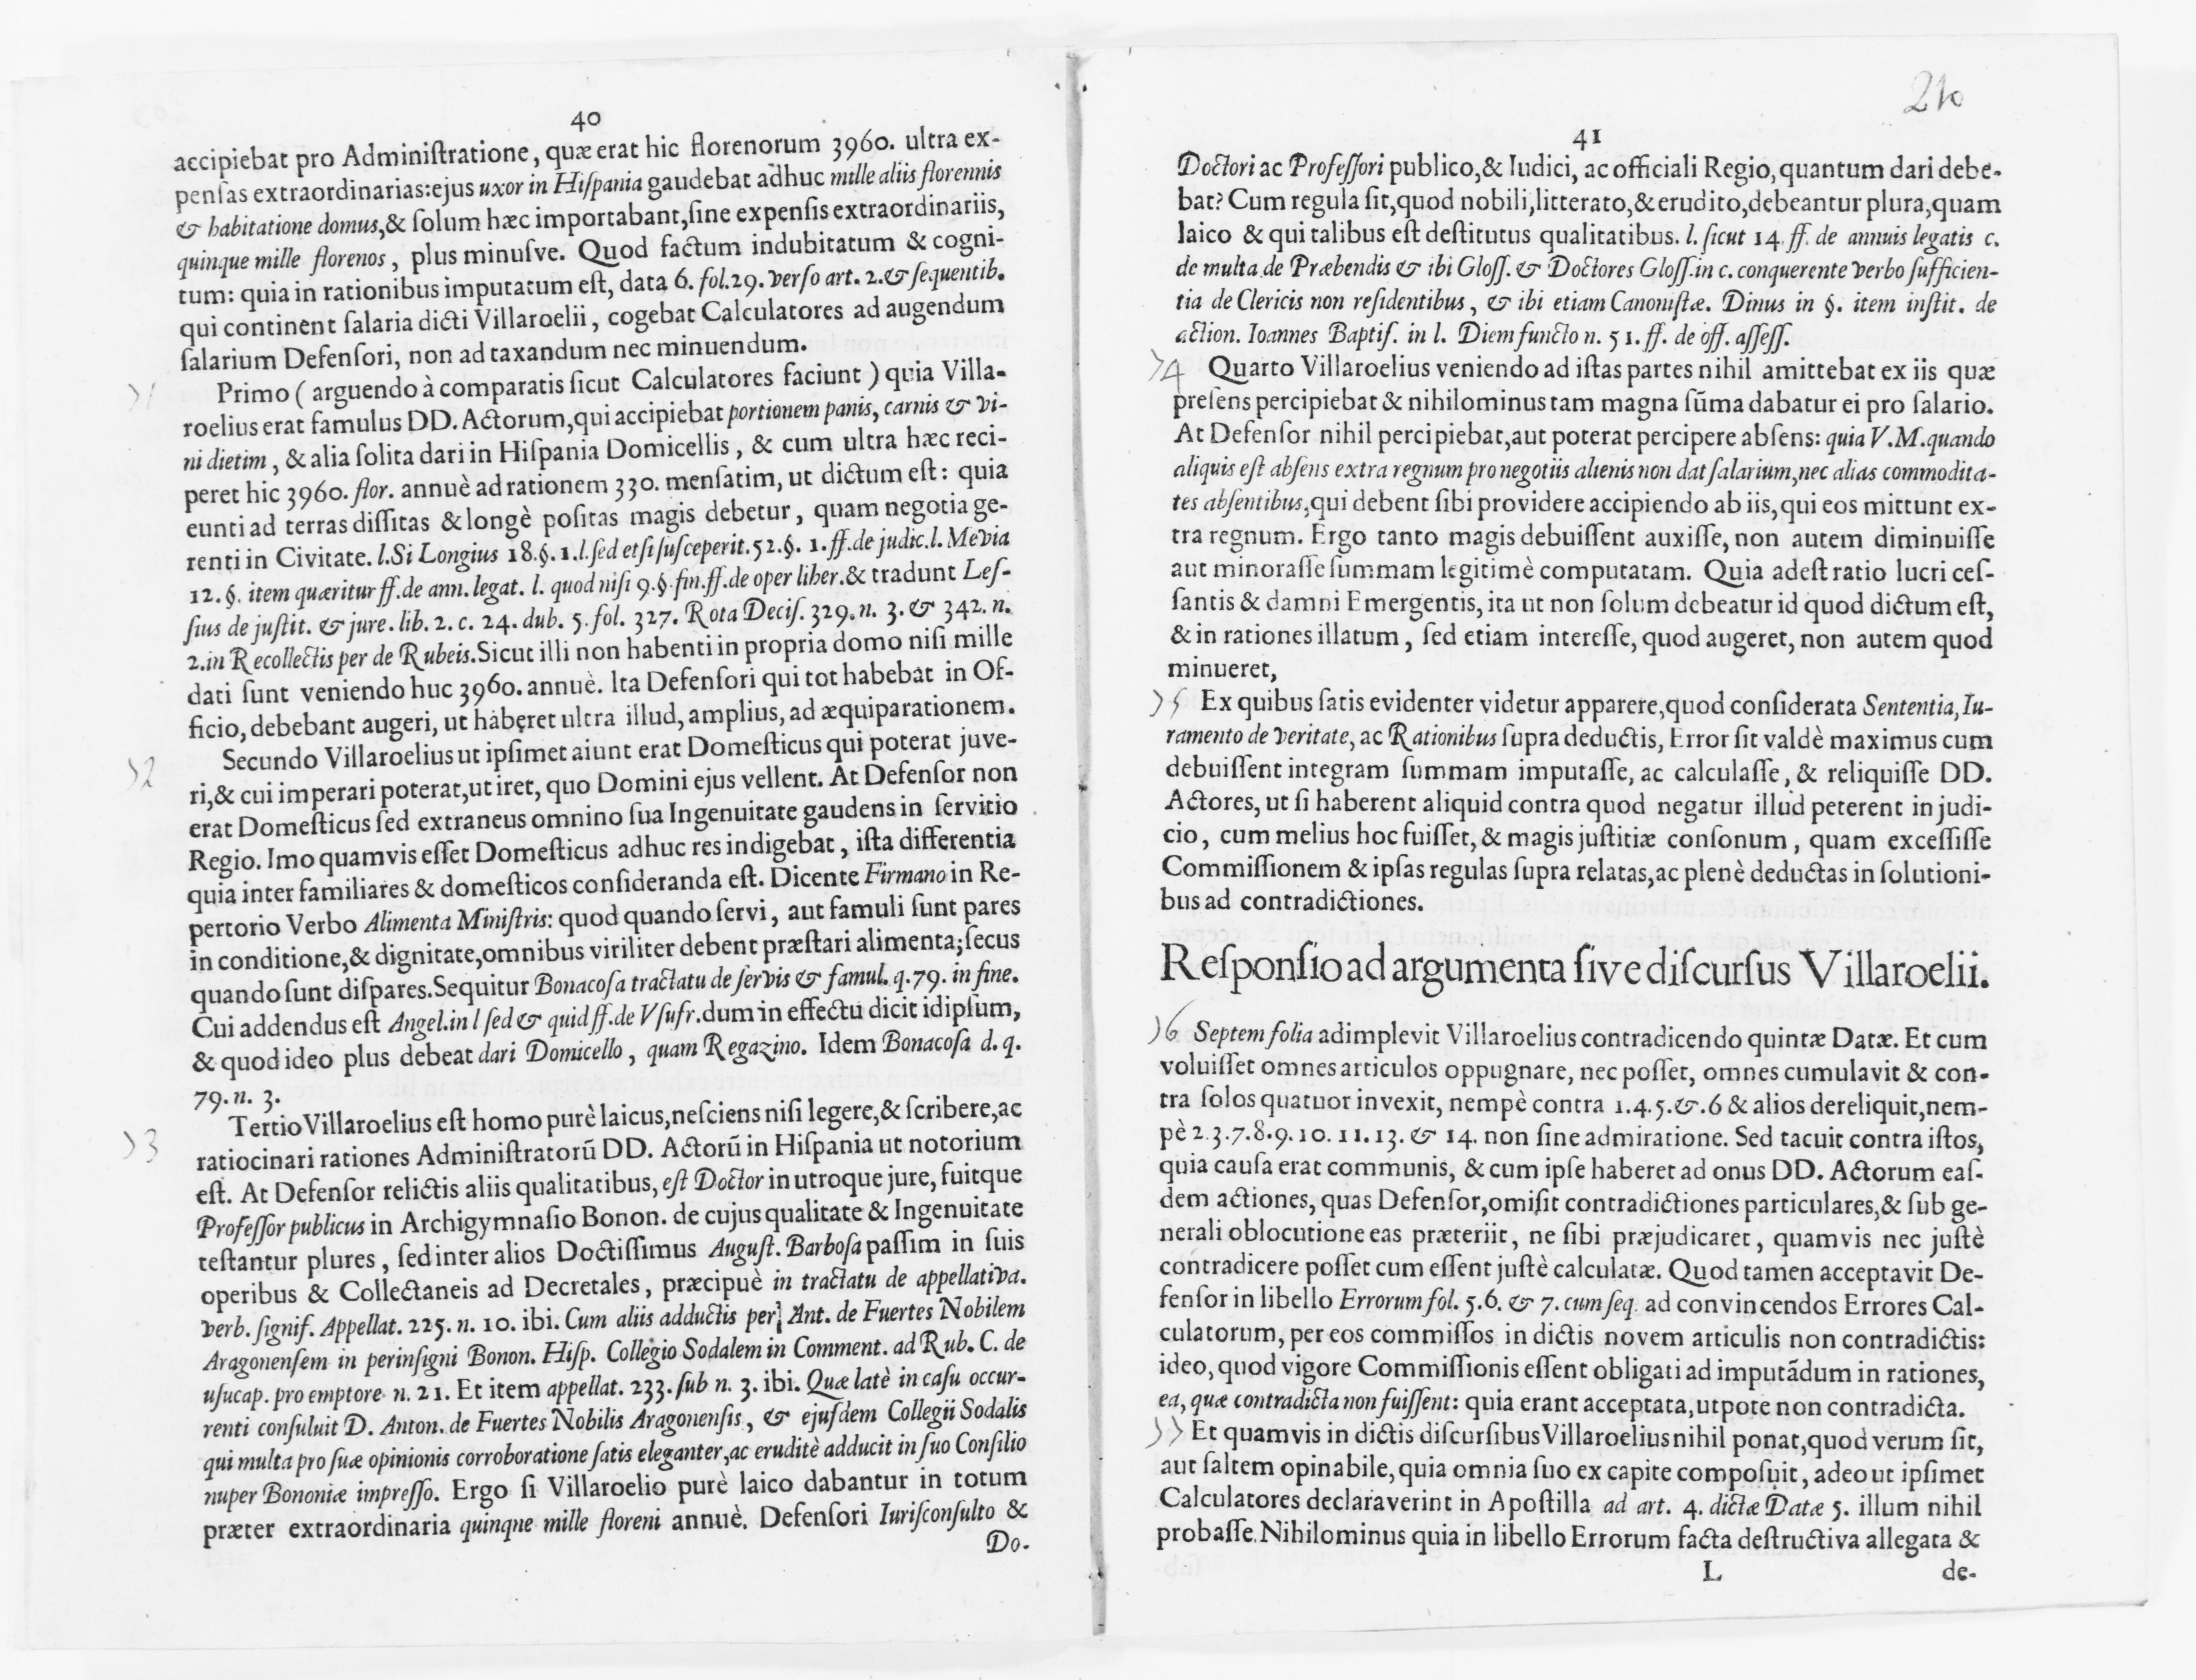 40
accipiebat pro Adminiſtratione, quæ erat hic florenorum 3960. ultra ex-
penſas extraordinarias: ejus uxor in Hiſpania gaudebat adhuc mille aliis florennis
& habitatione domus, & ſolum hæc importabant, ſine expenſis extraordinariis,
quinque mille florenos, plus minuſve. Quod factum indubitatum & cogni-
tum: quia in rationibus imputatum eſt, data 6. fol. 29. verſo art. 2. & ſequentib.
qui continent ſalaria dicti Villaroelii, cogebat Calculatores ad augendum
ſalarium Defenſori, non ad taxandum nec minuendum.
71 Primo (arguendo à comparatis ſicut Calculatores faciunt) quia Villa-
roelius erat famulus DD. Actorum, qui accipiebat portionem panis, carnis & vi-
ni dietim, & alia ſolita dari in Hiſpania Domicellis, & cum ultra hæc reci-
peret hic 3960. flor. annuè ad rationem 330. menſatim, ut dictum eſt: quia
eunti ad terras diſſitas & longè poſitas magis debetur, quam negotia ge-
renti in Civitate. l. Si Longius 18. §. 1. l. ſed etſi ſuſceperit. 52. §. 1. ff. de judic. l. Mevia
12. §. item quæritur ff. de ann. legat. l. quod niſi 9. §. fin. ff. de oper liber. & tradunt Leſ-
ſius de juſtit. & jure. lib. 2. c. 24. dub. 5. fol. 327. Rota Deciſ. 329. n. 3. & 342. n.
2. in Recollectis per de Rubeis. Sicut illi non habenti in propria domo niſi mille
dati ſunt veniendo huc 3960. annuè. Ita Defenſori qui tot habebat in Of-
ficio, debebant augeri, ut haberet ultra illud, amplius, ad æquiparationem.
72 Secundo Villaroelius ut ipſimet aiunt erat Domeſticus qui poterat juve-
ri, & cui imperari poterat, ut iret, quo Domini ejus vellent. At Defenſor non
erat Domeſticus ſed extraneus omnino ſua Ingenuitate gaudens in ſervitio
Regio. Imo quamvis eſſet Domeſticus adhuc res indigebat, iſta differentia
quia inter familiares & domeſticos conſideranda eſt. Dicente Firmano in Re-
pertorio Verbo Alimenta Miniſtris: quod quando ſervi, aut famuli ſunt pares
in conditione, & dignitate, omnibus viriliter debent præſtari alimenta; ſecus
quando ſunt diſpares. Sequitur Bonacoſa tractatu de ſervis & famul. q. 79. in fine.
Cui addendus eſt Angel. in l ſed & quid ff. de Uſufr. dum in effectu dicit idipſum,
& quod ideo plus debeat dari Domicello, quam Regazino. Idem Bonacoſa d. q.
79. n. 3.
73 Tertio Villaroelius eſt homo purè laicus, neſciens niſi legere, & ſcribere, ac
ratiocinari rationes Adminiſtratorũ DD. Actorũ in Hiſpania ut notorium
eſt. At Defenſor relictis aliis qualitatibus, eſt Doctor in utroque jure, fuitque
Profeſſor publicus in Archigymnaſio Bonon. de cujus qualitate & Ingenuitate
teſtantur plures, ſed inter alios Doctiſſimus Auguſt. Barboſa paſſim in ſuis
operibus & Collectaneis ad Decretales, præcipuè in tractatu de appellativa.
verb. ſignif. Appellat. 225. n. 10. ibi. Cum aliis adductis per Ant. de Fuertes Nobilem
Aragonenſem in perinſigni Bonon. Hiſp. Collegio Sodalem in Comment. ad Rub. C. de
uſucap. pro emptore n. 21. Et item appellat. 233. ſub n. 3. ibi. Quæ latè in caſu occur-
renti conſuluit D. Anton. de Fuertes Nobilis Aragonenſis, & ejuſdem Collegii Sodalis
qui multa pro ſuæ opinionis corroboratione ſatis eleganter, ac eruditè adducit in ſuo Conſilio
nuper Bononiæ impreſſo. Ergo ſi Villaroelio purè laico dabantur in totum
præter extraordinaria quinque mille floreni annuè. Defenſori Iuriſconſulto &
Do-
210
41
Doctori ac Profeſſori publico, & Iudici, ac officiali Regio, quantum dari debe-
bat? Cum regula ſit, quod nobili, litterato, & erudito, debeantur plura, quam
laico & qui talibus eſt deſtitutus qualitatibus. l. ſicut 14. ff. de annuis legatis c.
de multa de Præbendis & ibi Gloſſ. & Doctores Gloſſ. in c. conquerente verbo ſufficien-
tia de Clericis non reſidentibus, & ibi etiam Canoniſtæ. Dinus in §. item inſtit. de
action. Ioannes Baptiſ. in l. Diem functo n. 51. ff. de off. aſſeſſ.
74 Quarto Villaroelius veniendo ad iſtas partes nihil amittebat ex iis quæ
preſens percipiebat & nihilominus tam magna sũma dabatur ei pro ſalario.
At Defenſor nihil percipiebat, aut poterat percipere abſens: quia V. M. quando
aliquis eſt abſens extra regnum pro negotiis alienis non dat ſalarium, nec alias commodita-
tes abſentibus, qui debent ſibi providere accipiendo ab iis, qui eos mittunt ex-
tra regnum. Ergo tanto magis debuiſſent auxiſſe, non autem diminuiſſe
aut minoraſſe ſummam legitimè computatam. Quia adeſt ratio lucri ceſ-
ſantis & damni Emergentis, ita ut non ſolum debeatur id quod dictum eſt,
& in rationes illatum, ſed etiam intereſſe, quod augeret, non autem quod
minueret,
75 Ex quibus ſatis evidenter videtur apparere, quod conſiderata Sententia, Iu-
ramento de veritate, ac Rationibus ſupra deductis, Error ſit valdè maximus cum
debuiſſent integram ſummam imputaſſe, ac calculaſſe, & reliquiſſe DD.
Actores, ut ſi haberent aliquid contra quod negatur illud peterent in judi-
cio, cum melius hoc fuiſſet, & magis juſtitiæ conſonum, quam exceſſiſſe
Commiſſionem & ipſas regulas ſupra relatas, ac plenè deductas in ſolutioni-
bus ad contradictiones.
Reſponſio ad argumenta ſive diſcurſus Villaroelii.
76 Septem folia adimplevit Villaroelius contradicendo quintæ Datæ. Et cum
voluiſſet omnes articulos oppugnare, nec poſſet, omnes cumulavit & con-
tra ſolos quatuor invexit, nempè contra 1. 4. 5. &. 6 & alios dereliquit, nem-
pè 2. 3. 7. 8. 9. 10. 11. 13. & 14. non ſine admiratione. Sed tacuit contra iſtos,
quia cauſa erat communis, & cum ipſe haberet ad onus DD. Actorum eaſ-
dem actiones, quas Defenſor, omiſit contradictiones particulares, & ſub ge-
nerali oblocutione eas præteriit, ne ſibi præjudicaret, quamvis nec juſtè
contradicere poſſet cum eſſent juſtè calculatæ. Quod tamen acceptavit De-
fenſor in libello Errorum fol. 5. 6. & 7. cum ſeq. ad convincendos Errores Cal-
culatorum, per eos commiſſos in dictis novem articulis non contradictis:
ideo, quod vigore Commiſſionis eſſent obligati ad imputãdum in rationes,
ea, quæ contradicta non fuiſſent: quia erant acceptata, utpote non contradicta.
77 Et quamvis in dictis diſcurſibus Villaroelius nihil ponat, quod verum ſit,
aut ſaltem opinabile, quia omnia ſuo ex capite compoſuit, adeo ut ipſimet
Calculatores declaraverint in Apoſtilla ad art. 4. dictæ Datæ 5. illum nihil
probaſſe. Nihilominus quia in libello Errorum facta deſtructiva allegata &
L de-